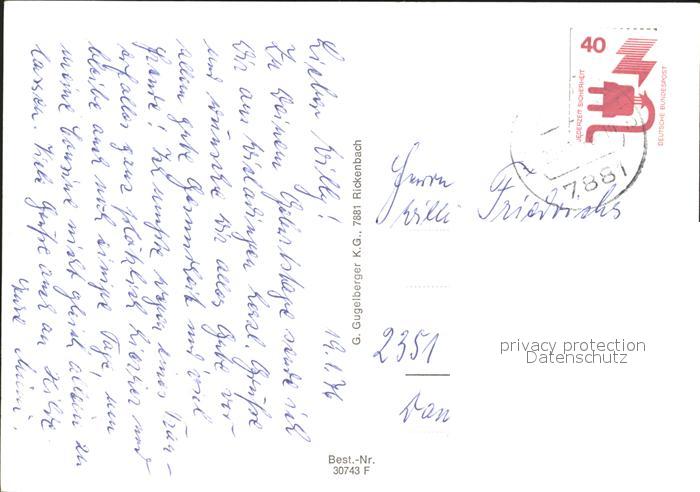 19.1.76
Lieber Willy!
Zu Deinem Geburtstage sende ich
Dir aus herzliche Grüße
und wünsche Dir alles Gute vor
allem gute Gesundheit und viel
Freude! Ich mußte wegen eines Trau-
erfalles ganz plötzlich hierher und
bleibe auch noch einige Tage, um
meine Cousine nicht gleich allein zu
lassen. Viele Grüße auch an Hilde.
Eure Mimi.
G. Gugelberger K.G., 7881 Rickenbach
Best.-Nr.
30743 F
40
JEDERZEIT SICHERHEIT
DEUTSCHE BUNDESPOST
7881
Herrn
Willi Friedrichs
2351
privacy protection
Datenschutz